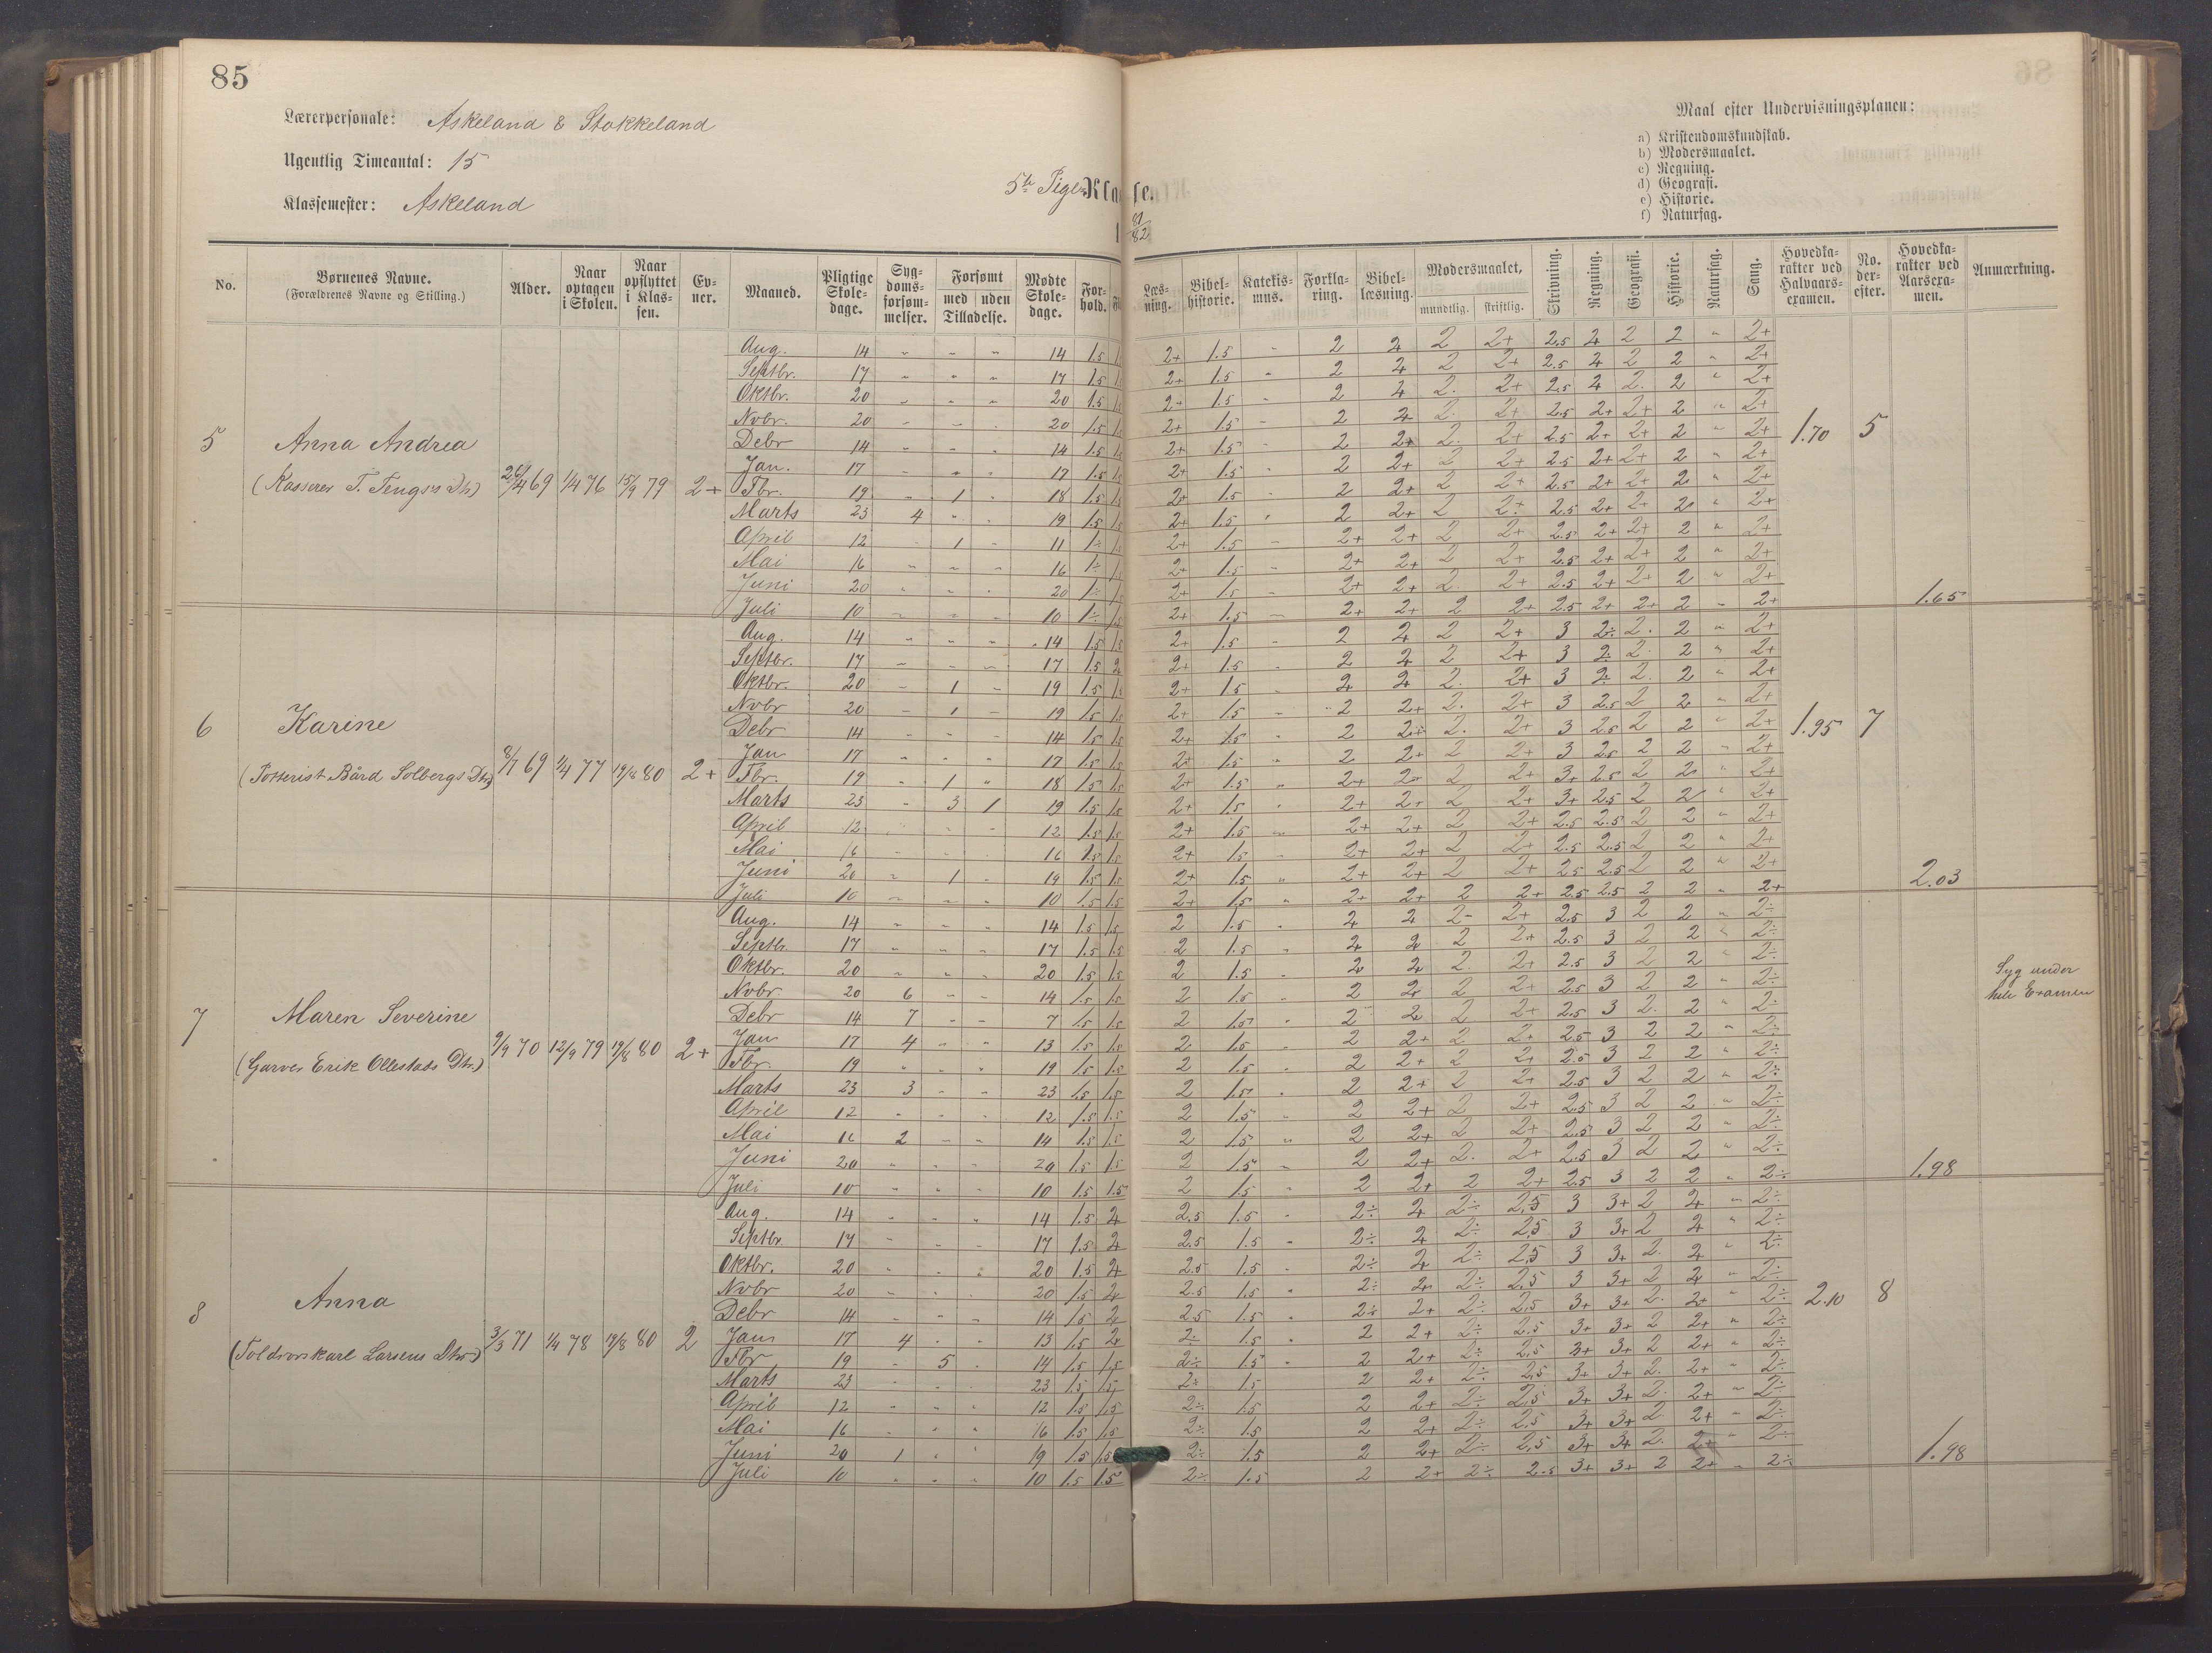 85
Lærerpersonale: Askeland & Stokkeland
Ugentlig Timeantal: 15
Klassemester: Askeland
5te Pige Klasse.
81/82
Maal efter Undervisningsplanen:
a) Kristendomskundskab.
b) Modersmaalet.
c) Regning.
d) Geografi.
e) Historie.
f) Naturfag.
No. Børnenes Navne. (Forældrenes Navne og Stilling.) Alder. Naar optagen i Skolen. Naar opflyttet i Klassen. Evner. Maaned. Pligtige Skoledage. Sygdomsforsømmelser. Forsømt med uden Tilladelse. Mødte Skoledage. Forhold. Læsning. Bibelhistorie. Katekismus. Forklaring. Bibellæsning. Modersmaalet, mundtlig. skriftlig. Skrivning. Regning. Geografi. Historie. Naturfag. Sang. Hovedkarakter ved Halvaarsexamen. No. derefter. Hovedkarakter ved Aarsexamen. Anmærkning.
5 Anna Andrea 1.70 5
(Kasserer T. Tengs's Dtr) 26/4 69 1/4 76 15/9 79 2+
Aug. 14 " " " 14 1.5 2+ 1.5 " 2 2 2 2+ 2.5 2 2 2 " 2+
Septbr. 17 " " " 17 1.5 2+ 1.5 " 2 2 2 2+ 2.5 2 2 2 " 2+
Oktbr. 20 " " " 20 1.5 2+ 1.5 " 2 2 2 2+ 2.5 2 2 2 " 2+
Nvbr. 20 " " " 20 1.5 2+ 1.5 " 2 2 2 2+ 2.5 2+ 2+ 2 " 2+
Debr 14 " " " 14 1.5 2+ 1.5 " 2 2+ 2 2+ 2.5 2+ 2+ 2 " 2+
Jan. 17 " " " 17 1.5 2+ 1.5 " 2 2+ 2 2+ 2.5 2+ 2+ 2 " 2+
Fbr. 19 " 1 " 18 1.5 2+ 1.5 " 2 2+ 2 2+ 2.5 2+ 2+ 2 " 2+
Marts 23 4 " " 19 1.5 2+ 1.5 " 2 2+ 2 2+ 2.5 2+ 2+ 2 " 2+
April 12 " 1 " 11 1÷ 2+ 1.5 " 2+ 2+ 2 2+ 2.5 2+ 2+ 2 " 2+
Mai 16 " " " 16 1÷ 2+ 1.5 " 2+ 2+ 2 2+ 2.5 2+ 2+ 2 " 2+
Juni 20 " " " 20 1÷ 2+ 1.5 " 2+ 2+ 2 2+ 2.5 2+ 2+ 2 " 2+
Juli 10 " " " 10 1÷ 2+ 1.5 " 2+ 2+ 2 2+ 2.5 2+ 2+ 2 " 2+ 1.65
6 Karine 1.95 7
(Bård Solbergs Dtr) 8/7 69 1/4 77 19/8 80 2+
Aug. 14 " " " 14 1.5 1.5 2+ 1.5 " 2 2 2 2+ 3 2÷ 2 2 " 2+
Septbr. 17 " " " 17 1.5 2 2+ 1.5 " 2 2 2 2+ 3 2÷ 2 2 " 2+
Oktbr. 20 " 1 " 19 1.5 1.5 2+ 1.5 " 2 2 2 2+ 3 2÷ 2 2 " 2+
Nvbr 20 " 1 " 19 1.5 1.5 2+ 1.5 " 2 2+ 2 2+ 3 2.5 2 2 " 2+
Debr 14 " " " 14 1.5 1.5 2+ 1.5 " 2 2+ 2 2+ 3 2.5 2 2 " 2+
Jan 17 " " " 17 1.5 1.5 2+ 1.5 " 2 2+ 2 2+ 3 2.5 2 2 " 2+
Fbr. 19 " 1 " 18 1.5 1.5 2+ 1.5 " 2+ 2+ 2 2+ 3+ 2.5 2 2 " 2+
Marts 23 " 3 1 19 1.5 1.5 2+ 1.5 " 2+ 2+ 2 2+ 3+ 2.5 2 2 " 2+
April 12 " " " 12 1.5 1.5 2+ 1.5 " 2+ 2+ 2 2+ 2.5 2.5 2 2 " 2+
Mai 16 " " " 16 1.5 1.5 2+ 1.5 " 2+ 2+ 2 2+ 2.5 2.5 2 2 " 2+
Juni 20 " 1 " 19 1.5 1.5 2+ 1.5 " 2+ 2+ 2 2+ 2.5 2.5 2 2 " 2+
Juli 10 " " " 10 1.5 1.5 2+ 1.5 " 2+ 2+ 2 2+ 2.5 2.5 2 2 " 2+ 2.03
7 Maren Severine
(Garver Erik Ollestads Dtr.) 9/9 70 12/9 79 19/8 80 2+
Aug. 14 " " " 14 1.5 1.5 2 1.5 " 2 2 2 2+ 2.5 3 2 2 " 2÷
Septbr 17 " " " 17 1.5 1.5 2 1.5 " 2 2 2 2+ 2.5 3 2 2 " 2÷
Oktbr. 20 " " " 20 1.5 1.5 2 1.5 " 2 2 2 2+ 2.5 3 2 2 " 2÷
Nvbr 20 6 " " 14 1.5 1.5 2 1.5 " 2 2 2 2+ 2.5 3 2 2 " 2÷ Syg under hele Examen
Debr 14 7 " " 7 1.5 1.5 2 1.5 " 2 2 2 2+ 2.5 3 2 2 " 2÷
Jan 17 4 " " 13 1.5 1.5 2 1.5 " 2 2+ 2 2+ 2.5 3 2 2 " 2÷
Fbr. 19 " " " 19 1.5 1.5 2 1.5 " 2 2+ 2 2+ 2.5 3 2 2 " 2÷
Marts 23 3 " " 23 1.5 1.5 2 1.5 " 2 2+ 2 2+ 2.5 3 2 2 " 2÷
April 12 " " " 12 1.5 1.5 2 1.5 " 2 2+ 2 2+ 2.5 3 2 2 " 2÷
Mai 16 2 " " 14 1.5 1.5 2 1.5 " 2 2+ 2 2+ 2.5 3 2 2 " 2÷
Juni 20 " " " 20 1.5 1.5 2 1.5 " 2 2+ 2 2+ 2.5 3 2 2 " 2÷
Juli 10 " " " 10 1.5 1.5 2 1.5 " 2 2+ 2 2+ 2.5 3 2 2 " 2÷ 1.98
8 Anna 2.10 8
(Larsens Dtr) 3/3 71 1/4 78 19/8 80 2
Aug. 14 " " " 14 1.5 2 2.5 1.5 " 2÷ 2 2÷ 2.5 3 3+ 2 2 " 2÷
Septbr. 17 " " " 17 1.5 2 2.5 1.5 " 2÷ 2 2÷ 2.5 3 3+ 2 2 " 2÷
Oktbr. 20 " " " 20 1.5 2 2.5 1.5 " 2÷ 2 2÷ 2.5 3 3+ 2 2 " 2÷
Nvbr 20 " " " 20 1.5 2 2.5 1.5 " 2÷ 2 2÷ 2.5 3 3+ 2 2 " 2÷
Debr 14 " " " 14 1.5 2 2.5 1.5 " 2÷ 2+ 2÷ 2.5 3+ 3+ 2 2+ " 2÷
Jan 17 4 " " 13 1.5 2 2÷ 1.5 " 2 2+ 2÷ 2.5 3+ 3+ 2 2+ " 2÷
Fbr 19 " 5 " 14 1.5 1.5 2÷ 1.5 " 2 2+ 2÷ 2.5 3+ 3+ 2 2+ " 2÷
Marts 23 " " " 23 1.5 1.5 2÷ 1.5 2 2+ 2÷ 2.5 3+ 3+ 2 2+ " 2÷
April 12 " " " 12 1.5 1.5 2÷ 1.5 2 2+ 2÷ 2.5 3+ 3+ 2 2+ " 2÷
Mai 16 " " " 16 1.5 1.5 2÷ 1.5 2 2+ 2÷ 2.5 3+ 3+ 2 2+ " 2÷
Juni 20 1 " " 19 1.5 1.5 2÷ 1.5 2 2+ 2÷ 2.5 3+ 3+ 2 2+ " 2÷
Juli 10 " " " 10 1.5 1.5 2÷ 1.5 2 2+ 2÷ 2.5 3+ 3+ 2 2+ " 2÷ 1.98